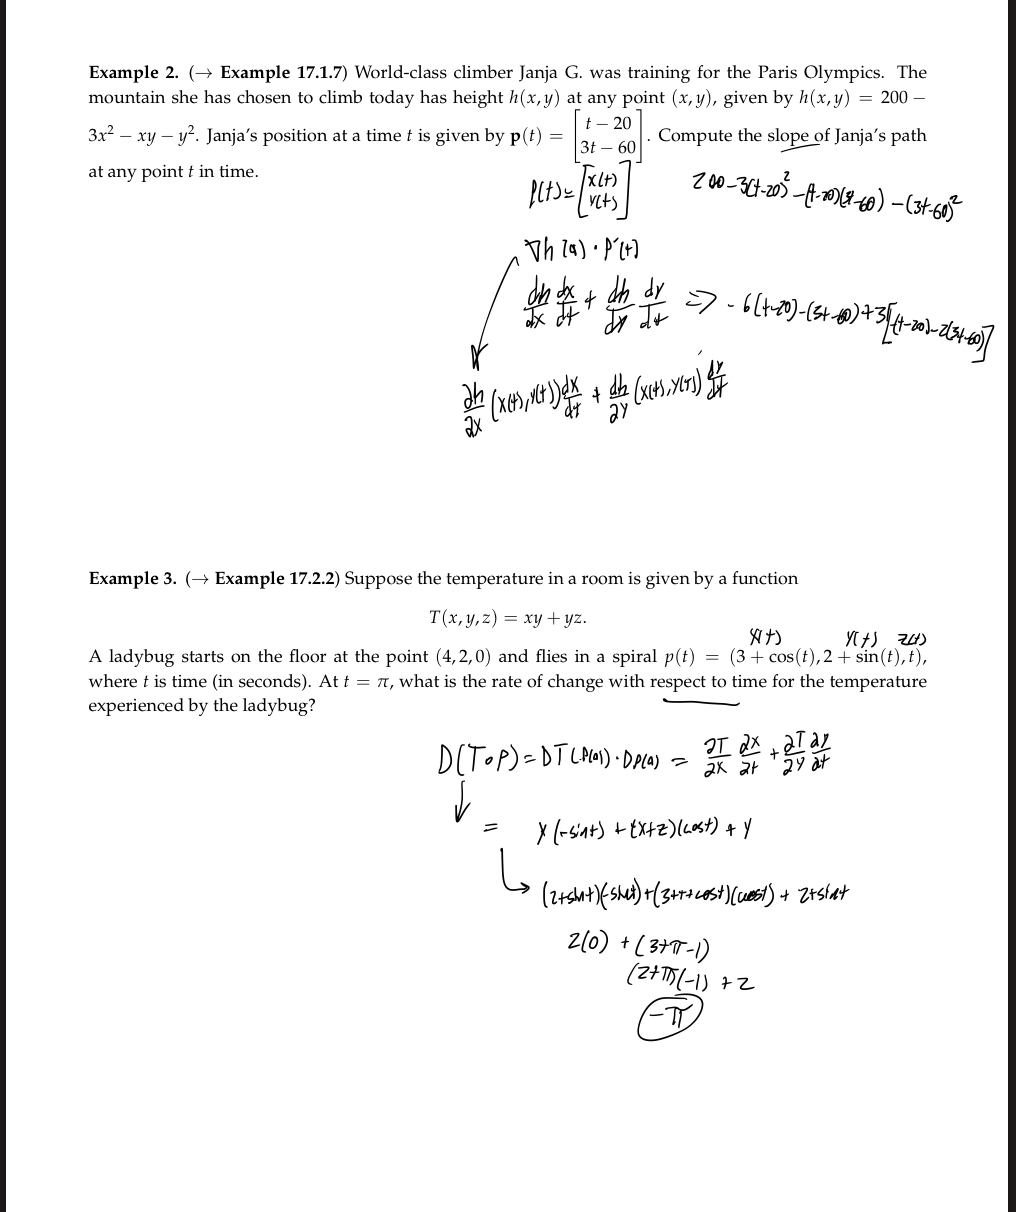 Example 2. (→ Example 17.1.7) World-class climber Janja G. was training for the Paris Olympics. The
mountain she has chosen to climb today has height h(x,y) at any point (x,y), given by h(x,y) = 200 −
3x² − xy − y². Janja's position at a time t is given by p(t) = [t − 20
3t − 60]. Compute the slope of Janja's path
at any point t in time.
p(t) = [x(t)
y(t)]
200-3(t-20)² -(t-20)(3t-60) -(3t-60)²
∇h(a) · p'(t)
dh/dx dx/dt + dh/dy dy/dt => -6(t-20)-(3t-60)+3[-(t-20)-2(3t-60)]
∂h/∂x (x(t),y(t)) dx/dt + dh/∂y (x(t),y(t)) dy/dt
Example 3. (→ Example 17.2.2) Suppose the temperature in a room is given by a function
T(x,y,z) = xy + yz.
x(t) y(t) z(t)
A ladybug starts on the floor at the point (4,2,0) and flies in a spiral p(t) = (3 + cos(t), 2 + sin(t), t),
where t is time (in seconds). At t = π, what is the rate of change with respect to time for the temperature
experienced by the ladybug?
D(T∘P) = DT(P(a)) · DP(a) = ∂T/∂x ∂x/∂t + ∂T/∂y ∂y/∂t
= y(-sint) + (x+z)(cost) + y
(2+sint)(-sint)+(3+t+cost)(cost) + 2+sint
2(0) + (3+π-1)
(2+π)(-1) + 2
-π